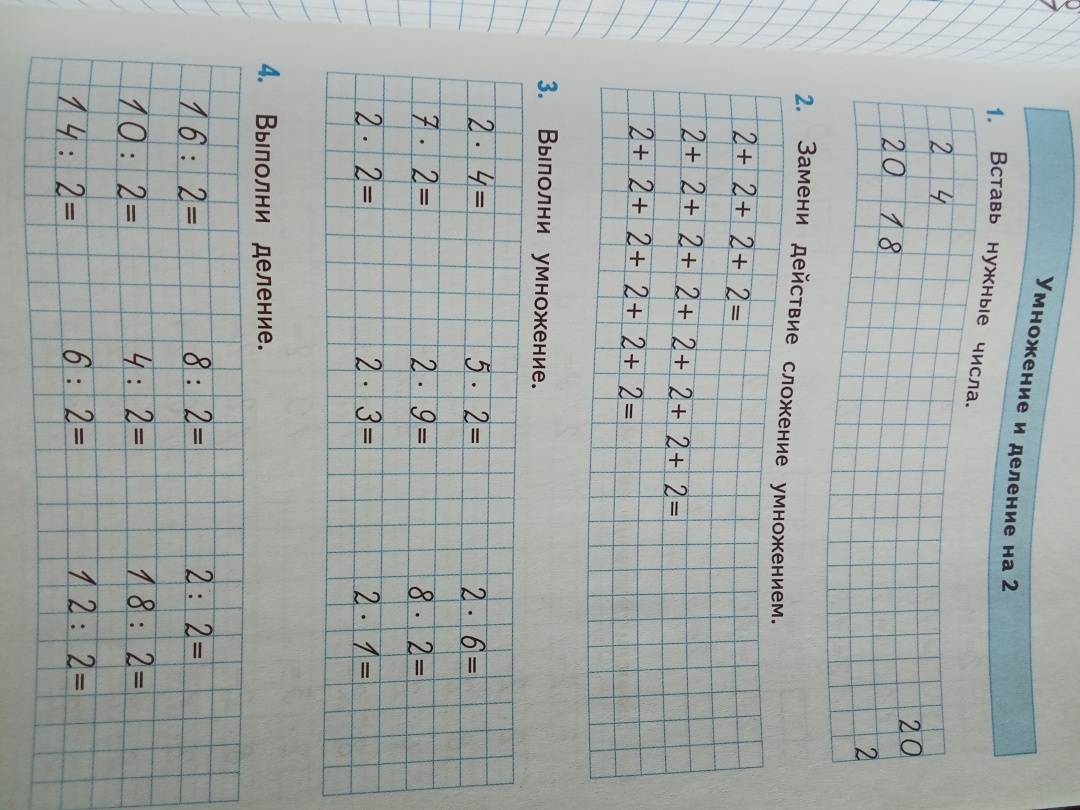 Умножение и деление на 2
1. Вставь нужные числа.
2 4 20
20 18 2
2. Замени действие сложение умножением.
2+ 2+ 2+ 2=
2+ 2+ 2+ 2+ 2+ 2+ 2=
2+ 2+ 2+ 2+ 2+ 2=
3. Выполни умножение.
2 · 4= 5 · 2= 2 · 6=
7 · 2= 2 · 9= 8 · 2=
2 · 2= 2 · 3= 2 · 1=
4. Выполни деление.
16 : 2= 8 : 2= 2 : 2=
10 : 2= 4 : 2= 18 : 2=
14 : 2= 6 : 2= 12 : 2=